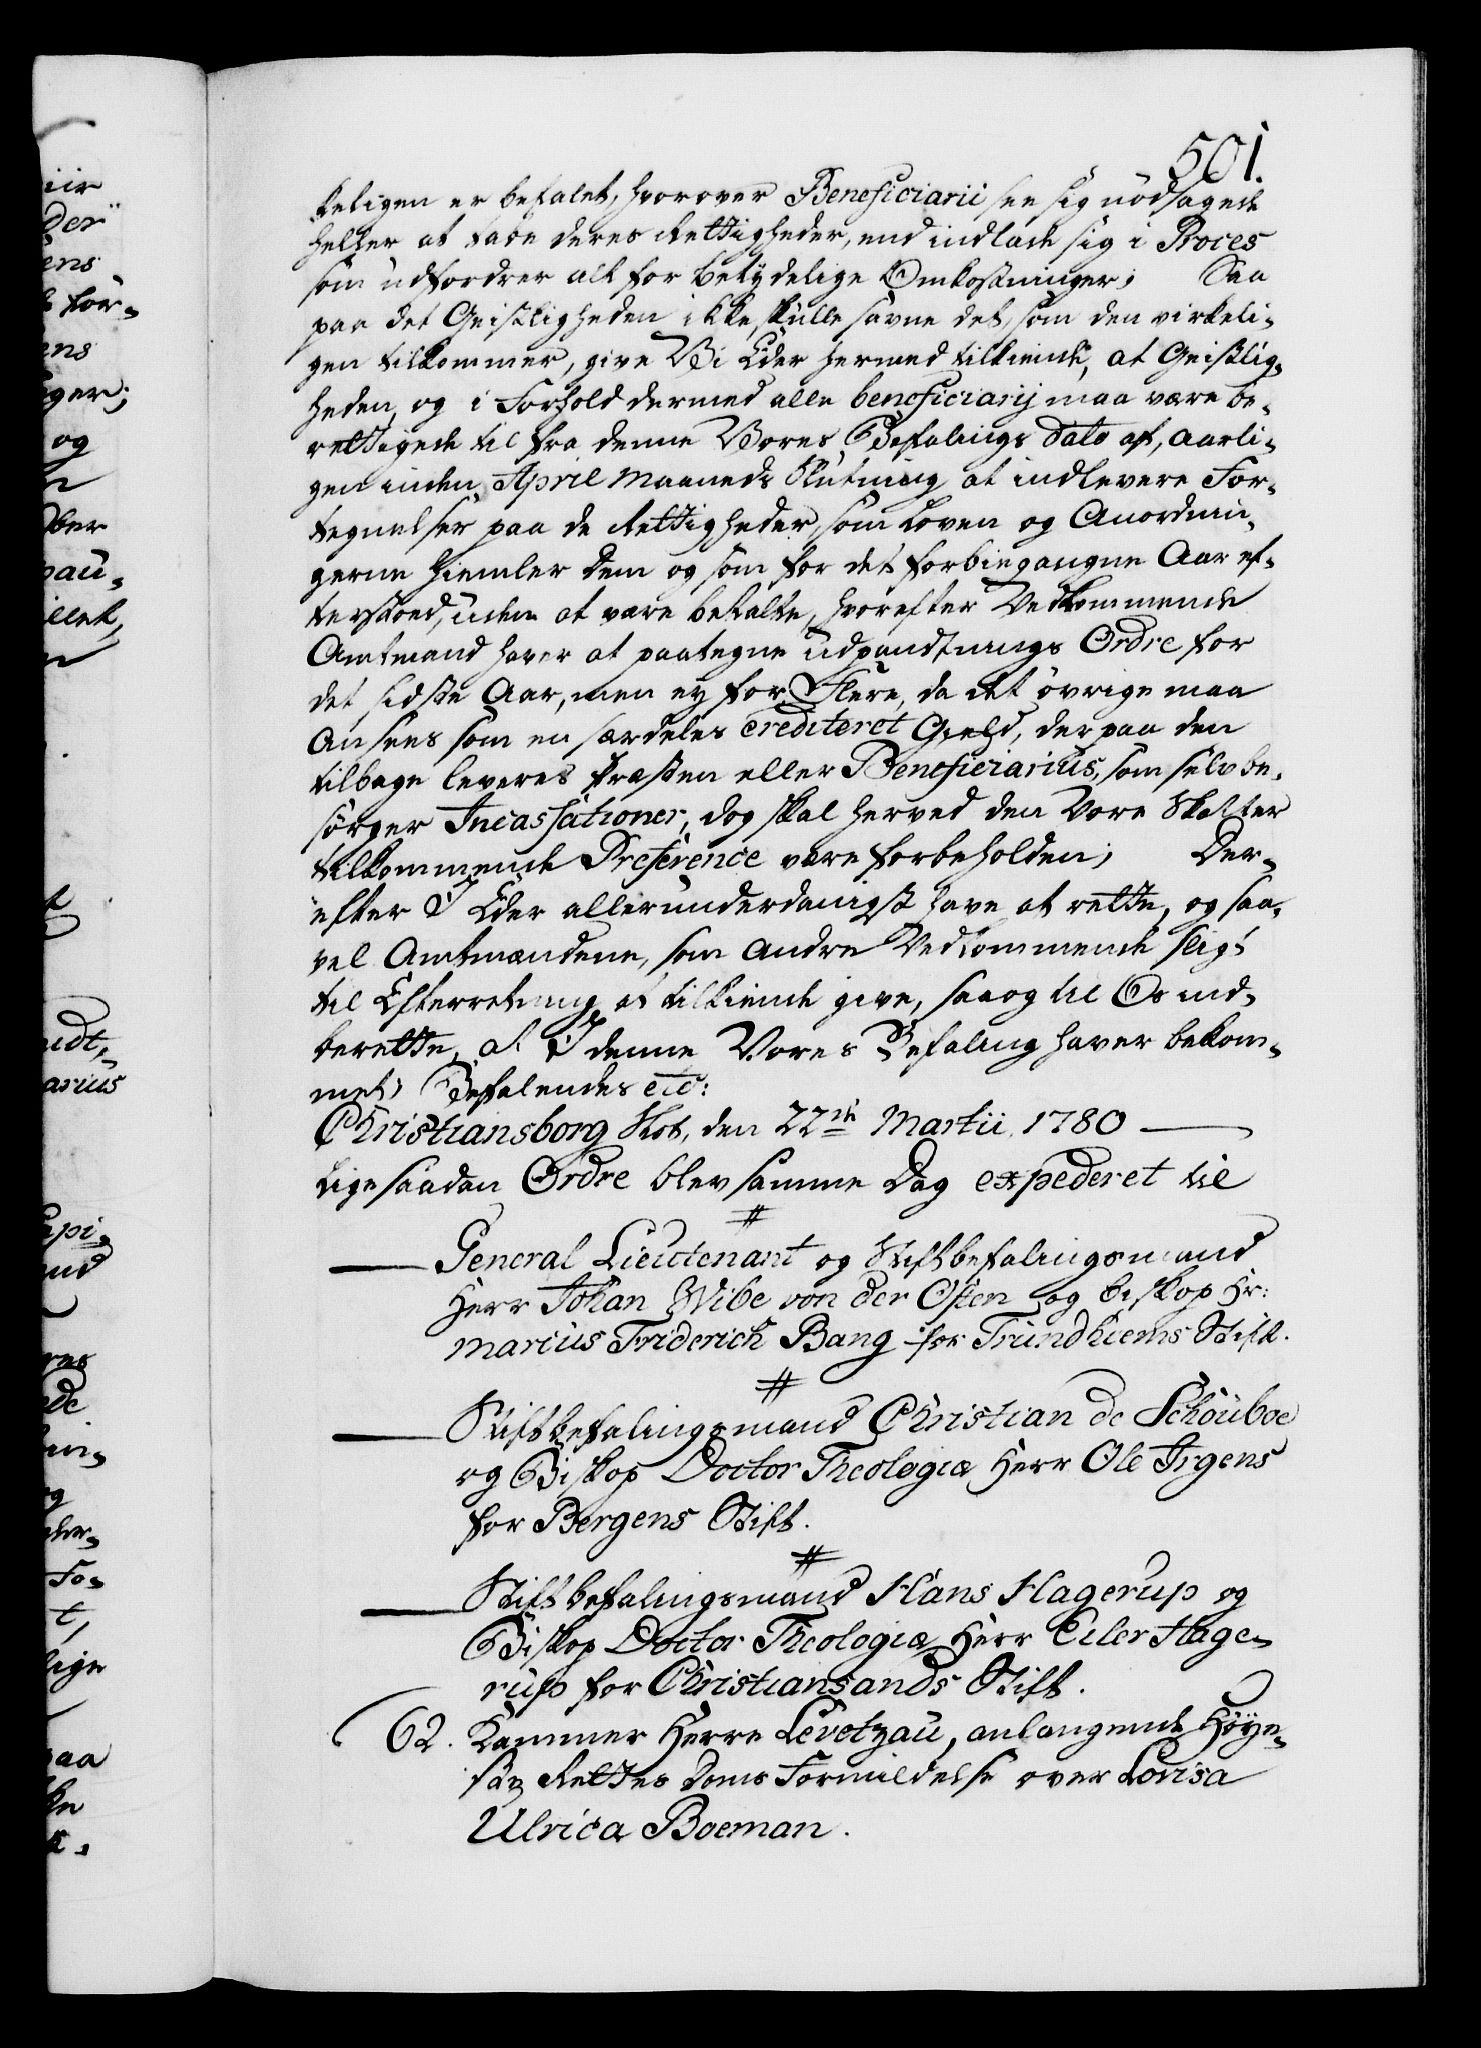 501.
keligen er befalet, hvorover Beneficiarii see sig nödsagede
heller at tabe deres Rettigheder, end indlade sig i Proces
som udfordrer alt for betydelige Omkostninger; Saa
paa det Geistligheden ikke skulle savne det, som den virkeli-
gen tilkommer, give Vi Eder hermed tilkiende, at Geistlig-
heden, og i Forhold dermed alle beneficiarij maa være be-
rettigede til fra denne Vores Befalings dato af, aarli-
gen inden April Maaneds Slutning at indlevere For-
tegnelser paa de Rettigheder, som Loven og Anordnin-
gerne hiemler dem og som for det forbigangne Aar ef-
terstoed, uden at være betalte, hvorefter Vedkommende
Amtmand haver at paategne Udpandtnings Ordre for
det sidste Aar, men ey for Flere, da det øvrige maa
Ansees som en særdeles crediteret Gield, der paa den
tilbage leveres Præsten eller Beneficiarius, som selv be-
sörger Incassationer, dog skal herved den Vore Skatter
tilkommende Preference være forbeholden; Der-
efter I Eder allerunderdanigst have at rette, og saa-
vel Amtmændene, som Andre Vedkommende sligt
til Efterretning at tilkiende give, saa og til Os ind-
berette, at I denne Vores Befaling haver bekom-
met; Befalendes etc:
Christiansborg Slot, den 22de Martii 1780
Lige saadan Ordre blev samme Dag expederet til
#
General Lieutenant og Stiftbefalingsmand
Herr Johan Wibe von der Osten og biskop Hr:
Marius Friderich Bang for Trundhiems Stift.
#
Stiftbefalingsmand Christian de Schouboe
og Biskop Doctor Theologiæ Herr Ole Irgens
for Bergens Stift.
#
Stiftbefalingsmand Hans Hagerup og
Biskop Doctor Theologiæ Herr Eiler Hage-
rup for Christiansands Stift.
62. Kammer Herre Levetzau, anlangende Höye-
ste Rettes Doms Formildelse over Lovisa
Ulrica Boeman.